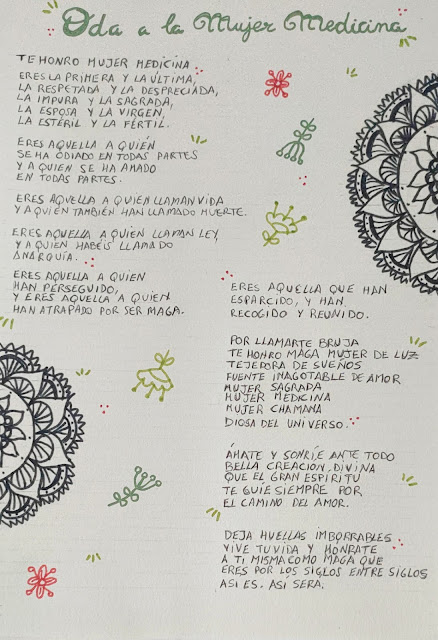 Oda a la Mujer Medicina
TE HONRO MUJER MEDICINA
ERES LA PRIMERA Y LA ÚLTIMA,
LA RESPETADA Y LA DESPRECIADA,
LA IMPURA Y LA SAGRADA,
LA ESPOSA Y LA VIRGEN,
LA ESTÉRIL Y LA FÉRTIL.
ERES AQUELLA A QUIÉN
SE HA ODIADO EN TODAS PARTES
Y A QUIEN SE HA AMADO
EN TODAS PARTES.
ERES AQUELLA A QUIEN LLAMAN VIDA
Y A QUIÉN TAMBIÉN HAN LLAMADO MUERTE.
ERES AQUELLA A QUIEN LLAMAN LEY,
Y A QUIEN HABÉIS LLAMADO
ANARQUÍA.
ERES AQUELLA A QUIEN
HAN PERSEGUIDO,
Y ERES AQUELLA A QUIEN
HAN ATRAPADO POR SER MAGA.
ERES AQUELLA QUE HAN
ESPARCIDO, Y HAN
RECOGIDO Y REUNIDO.
POR LLAMARTE BRUJA
TE HONRO MAGA MUJER DE LUZ
TEJEDORA DE SUEÑOS
FUENTE INAGOTABLE DE AMOR
MUJER SAGRADA
MUJER MEDICINA
MUJER CHAMANA
DIOSA DEL UNIVERSO.
ÁMATE Y SONRÍE ANTE TODO
BELLA CREACION DIVINA
QUE EL GRAN ESPIRITU
TE GUÍE SIEMPRE POR
EL CAMINO DEL AMOR.
DEJA HUELLAS IMBORRABLES
VIVE TU VIDA Y HONRATE
A TI MISMA COMO MAGA QUE
ERES POR LOS SIGLOS ENTRE SIGLOS
ASI ES. ASI SERÁ.